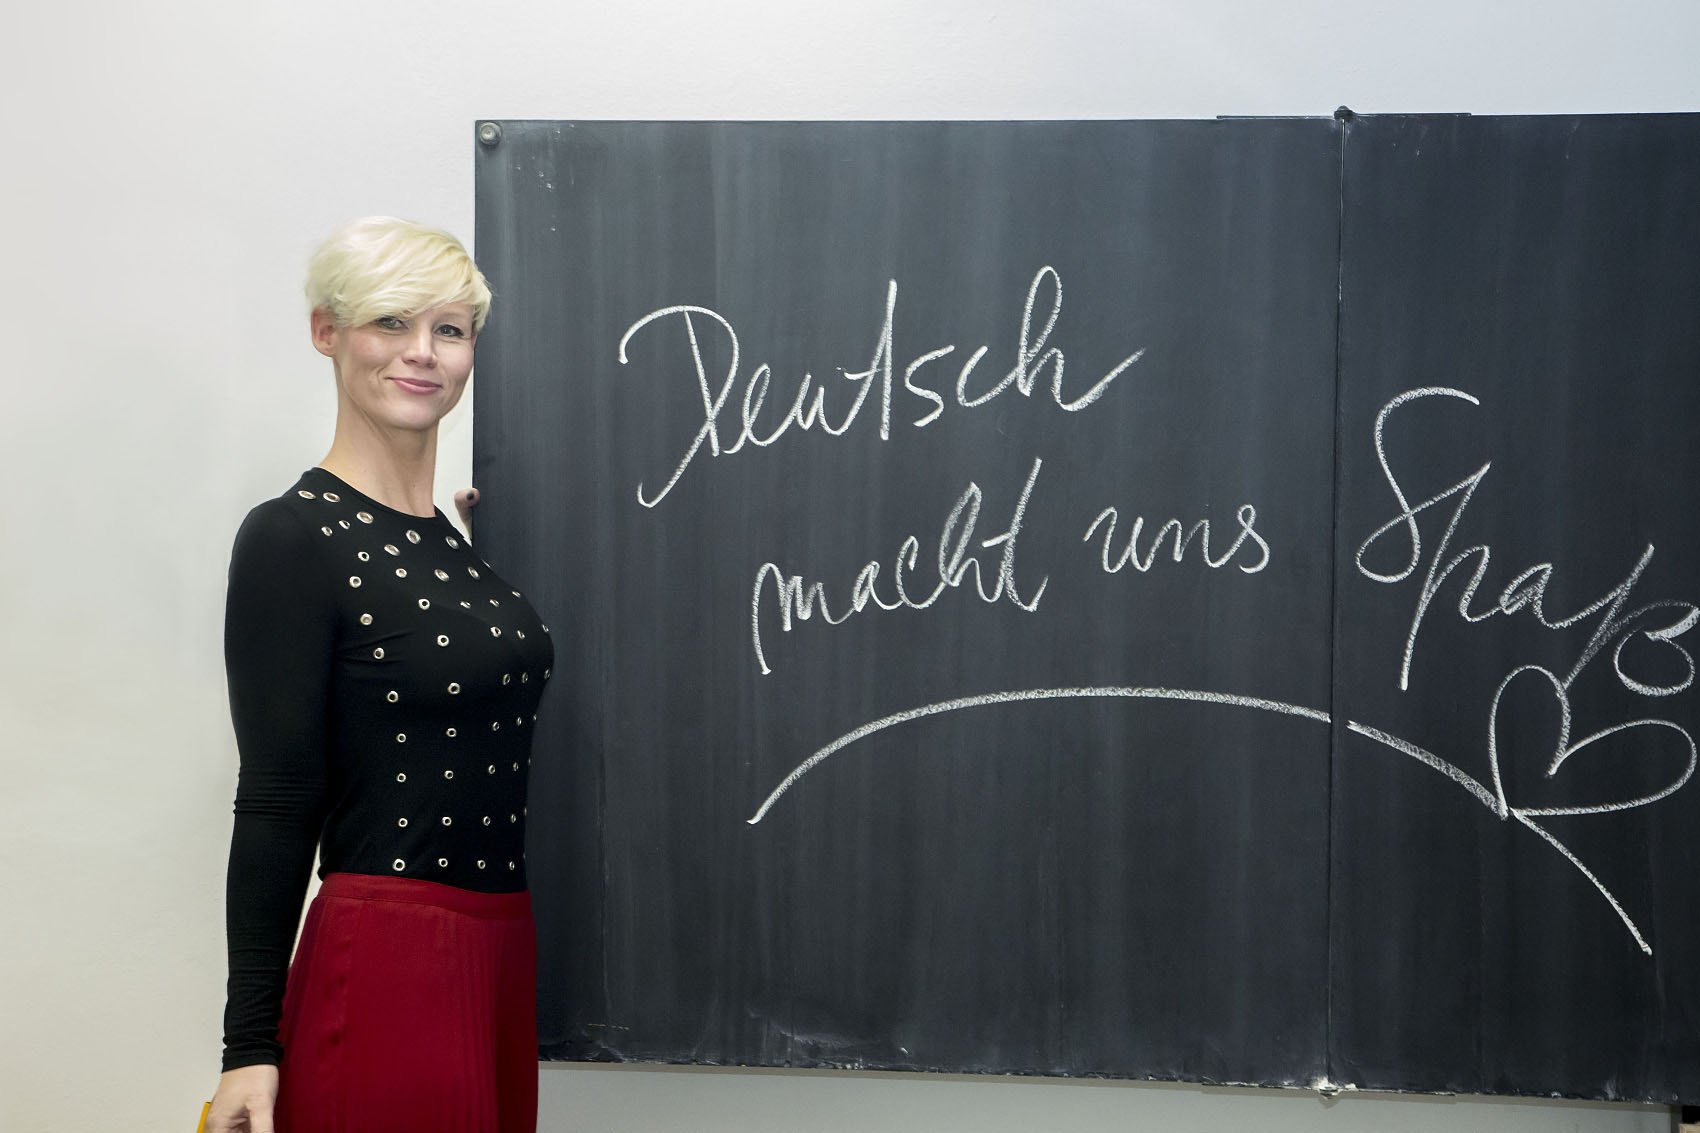 Deutsch
macht uns Spaß